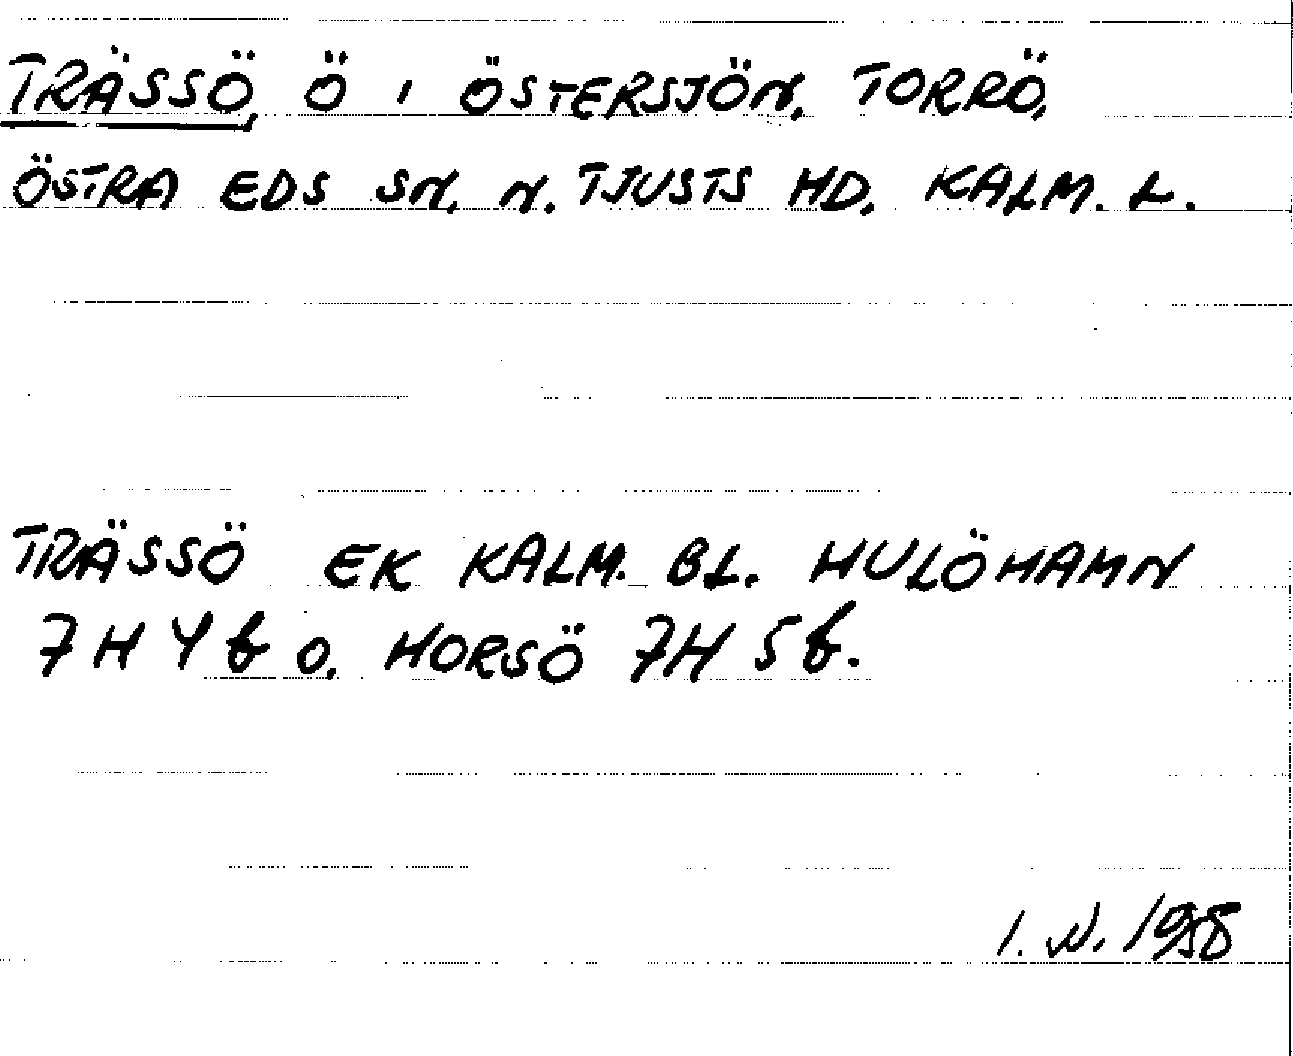 TRÄSSÖ, Ö I ÖSTERSJÖN, TORRÖ,
ÖSTRA EDS SN, N. TJUSTS HD, KALM. L.
TRÄSSÖ EK KALM. BL. HULÖHAMN
7H 4b O. HORSÖ 7H 5b.
I. N. 1958